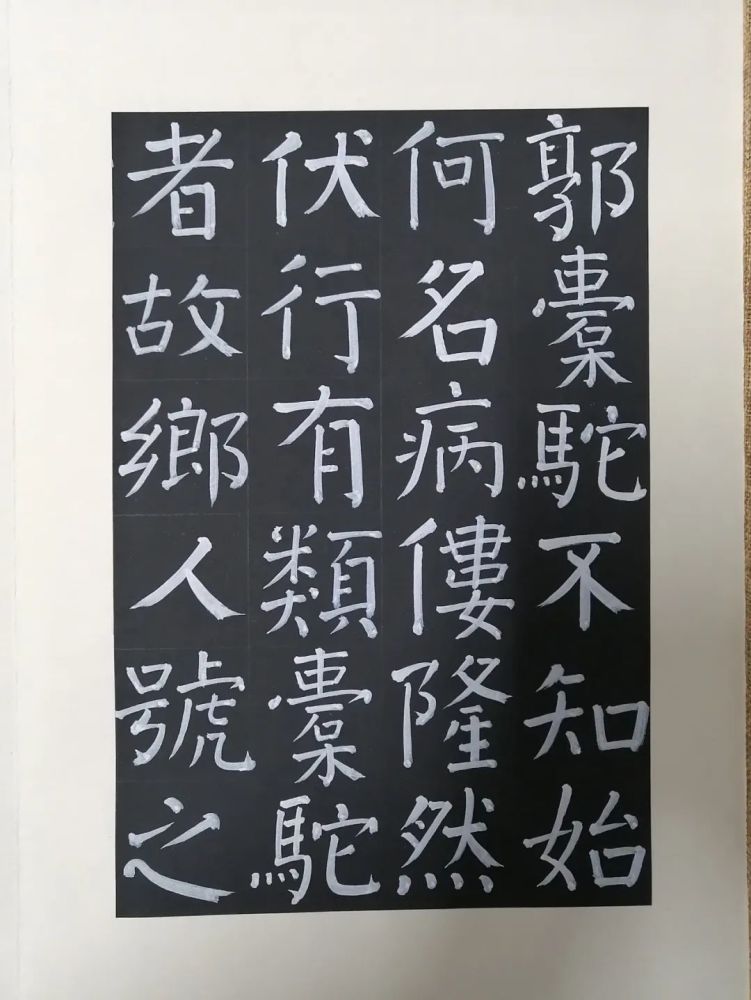 郭橐駝不知始
何名病僂隆然
伏行有類橐駝
者故鄉人號之